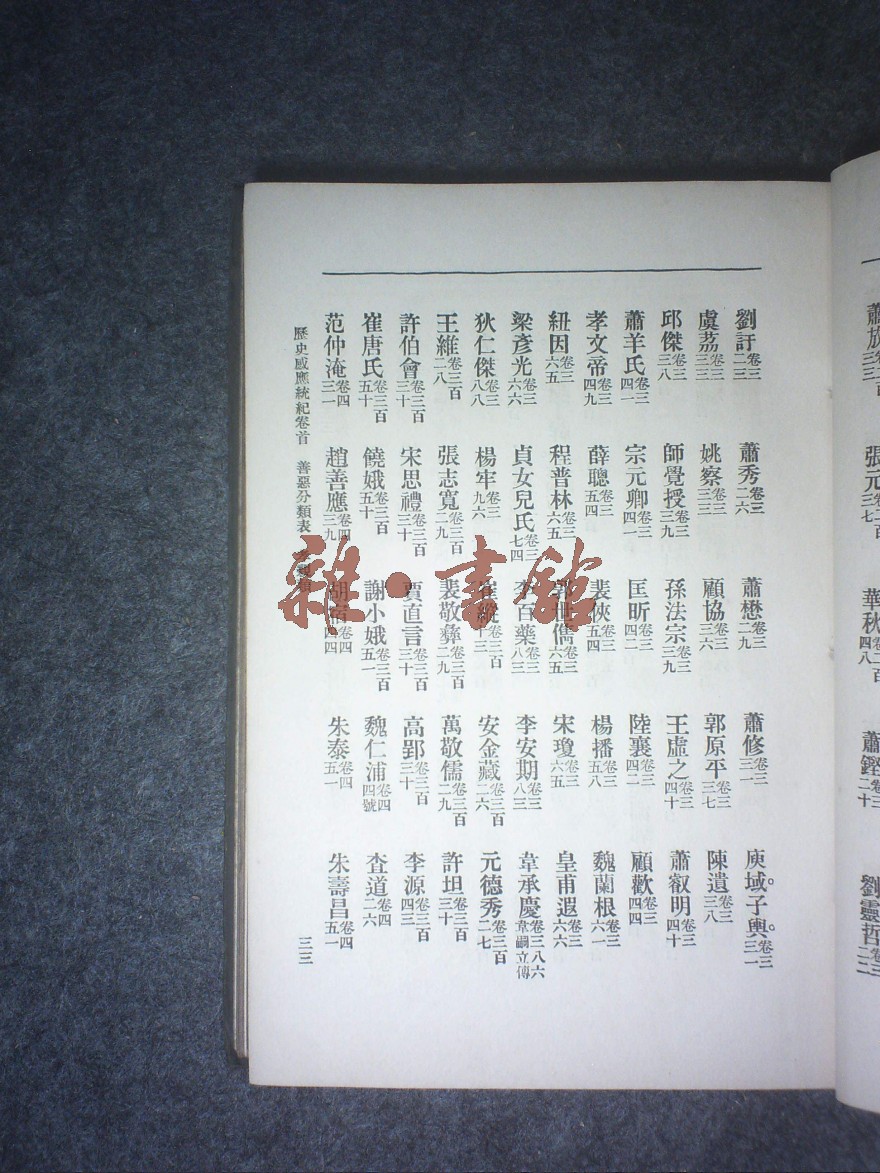 張元卷二百三七　華秋卷二百四八　蕭鏗卷三二十　劉靈哲卷三二二
劉訏卷三二三　蕭秀卷三二六　蕭懋卷三二九　蕭修卷三三一　庾域。子輿。卷三三一
虞荔卷三三三　姚察卷三三三　顧協卷三三六　郭原平卷三三七　陳遺卷三三八
邱傑卷三三八　師覺授卷三三九　孫法宗卷三三九　王虛之卷三四十　蕭叡明卷三四十
蕭羊氏卷三四一　宗元卿卷三四一　匡昕卷三四二　陸襄卷三四二　顧歡卷三四四
孝文帝卷三四九　薛聰卷三五四　裴俠卷三五四　楊播卷三五八　魏蘭根卷三六一
紐因卷三六五　程普林卷三六五　世儁卷三六五　宋瓊卷三六五　皇甫遐卷三六六
梁彥光卷三六六　貞女兒氏卷三七四　李百藥卷三八三　李安期卷三八三　韋承慶卷三八六韋嗣立傳
狄仁傑卷三八八　楊牢卷三九六　崔縱卷三百十三　安金藏卷三百二六　元德秀卷三百二七
王維卷三百二八　張志寬卷三百二九　裴敬彝卷三百二九　萬敬儒卷三百二九　許坦卷三百三十
許伯會卷三百三十　宋思禮卷三百三十　賈直言卷三百三十　高郢卷三百三十　李源卷三百四三
崔唐氏卷三百五十　饒娥卷三百五十　謝小娥卷三百五一　魏仁浦卷四四號　査道卷四二六
范仲淹卷四三一　趙善應卷四三九　胡宿卷四四四　朱泰卷四五一　朱壽昌卷四五一
歷史感應統紀卷首　善惡分類表　三三
雜·書館